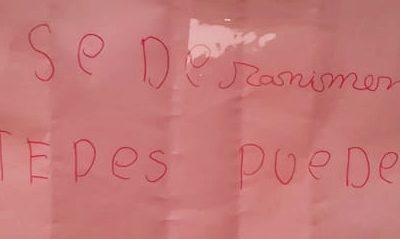 Se Desanismen
TEDes PUeDe